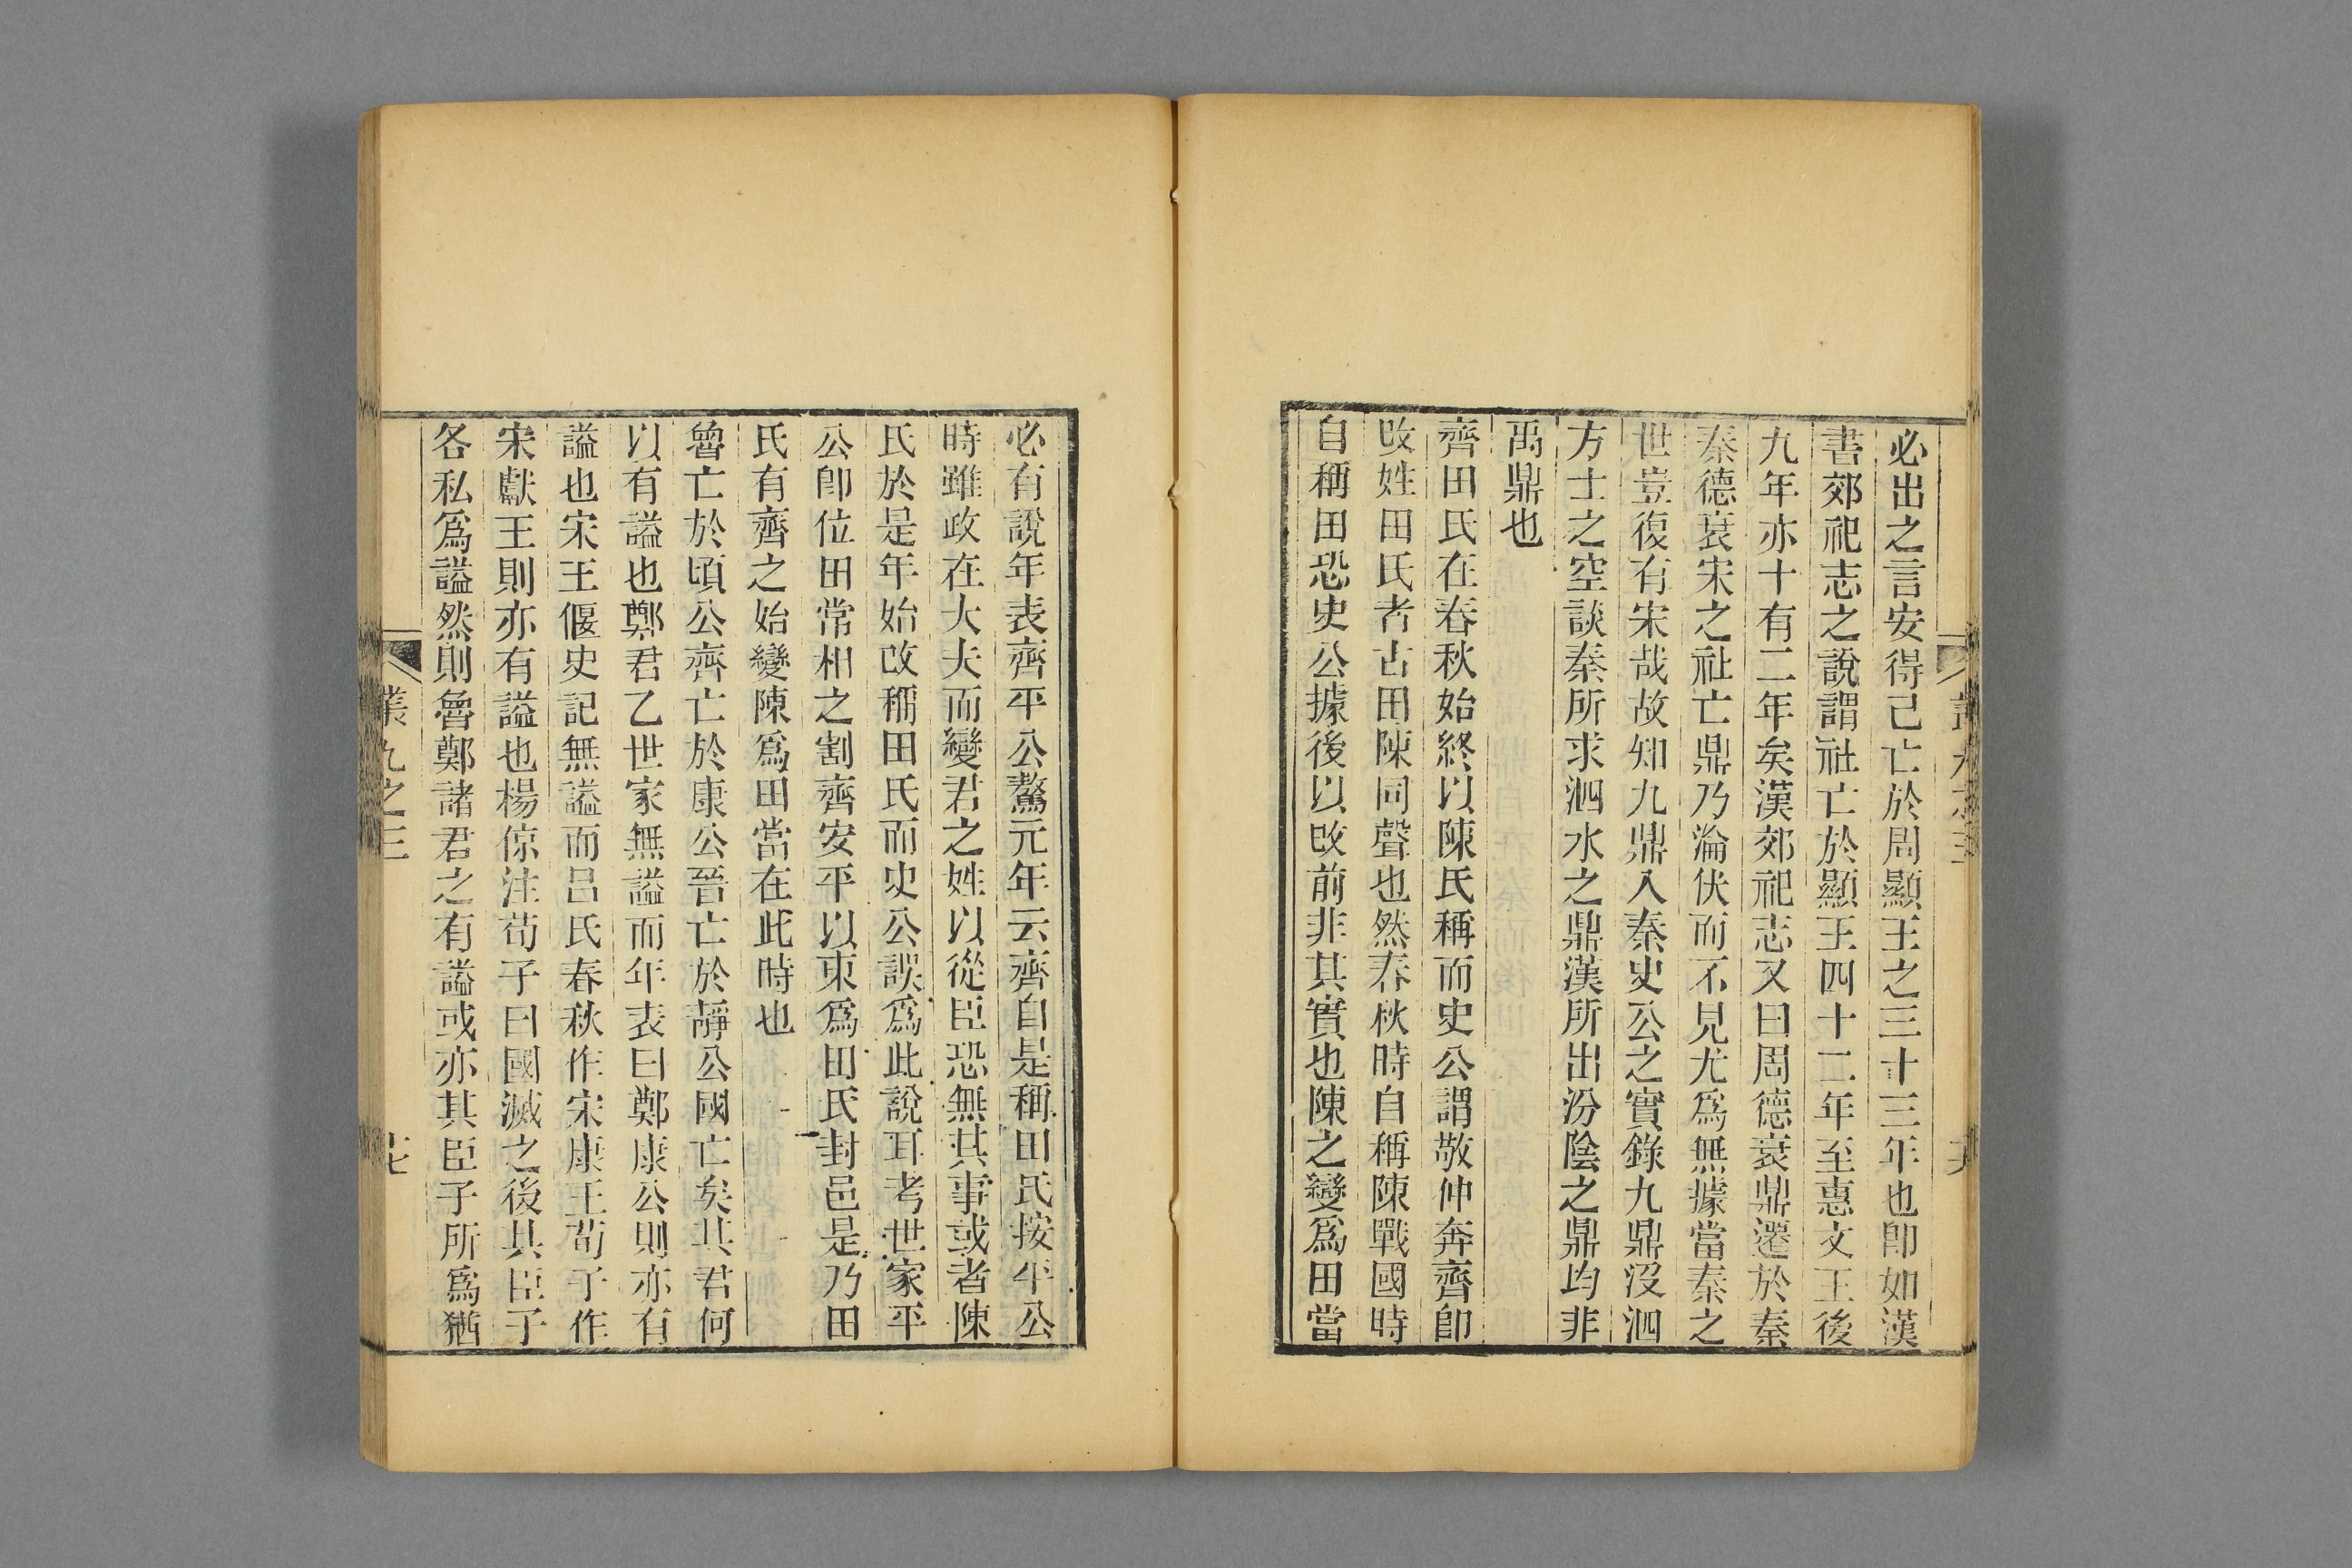 必出之言安得己亡於周顯王之三十三年也卽如漢
書郊祀志之說謂社亡於顯王四十二年至惠文王後
九年亦十有二年矣漢郊祀志又曰周德衰鼎遷於秦
秦德衰宋之社亡鼎乃淪伏而不見尤爲無據當秦之
世豈復有宋哉故知九鼎入秦史公之實錄九鼎沒泗
方士之空談秦所求泗水之鼎漢所出汾陰之鼎均非
禹鼎也
齊田氏在春秋始終以陳氏稱而史公謂敬仲奔齊卽
改姓田氏者古田陳同聲也然春秋時自稱陳戰國時
自稱田恐史公據後以改前非其實也陳之變爲田當
必有說年表齊平公驁元年云齊自是稱田氏按平公
時雖政在大夫而變君之姓以從臣恐無其事或者陳
氏於是年始改稱田氏而史公誤爲此說耳考世家平
公卽位田常相之割齊安平以東爲田氏封邑是乃田
氏有齊之始變陳爲田當在此時也
魯亡於頃公齊亡於康公晉亡於靜公國亡矣其君何
以有謚也鄭君乙世家無謚而年表曰鄭康公則亦有
謚也宋王偃史記無謚而呂氏春秋作宋康王荀子作
宋獻王則亦有謚也楊倞注荀子曰國滅之後其臣子
各私爲謚然則魯鄭諸君之有謚或亦其臣子所爲猶
叢九之三
十七